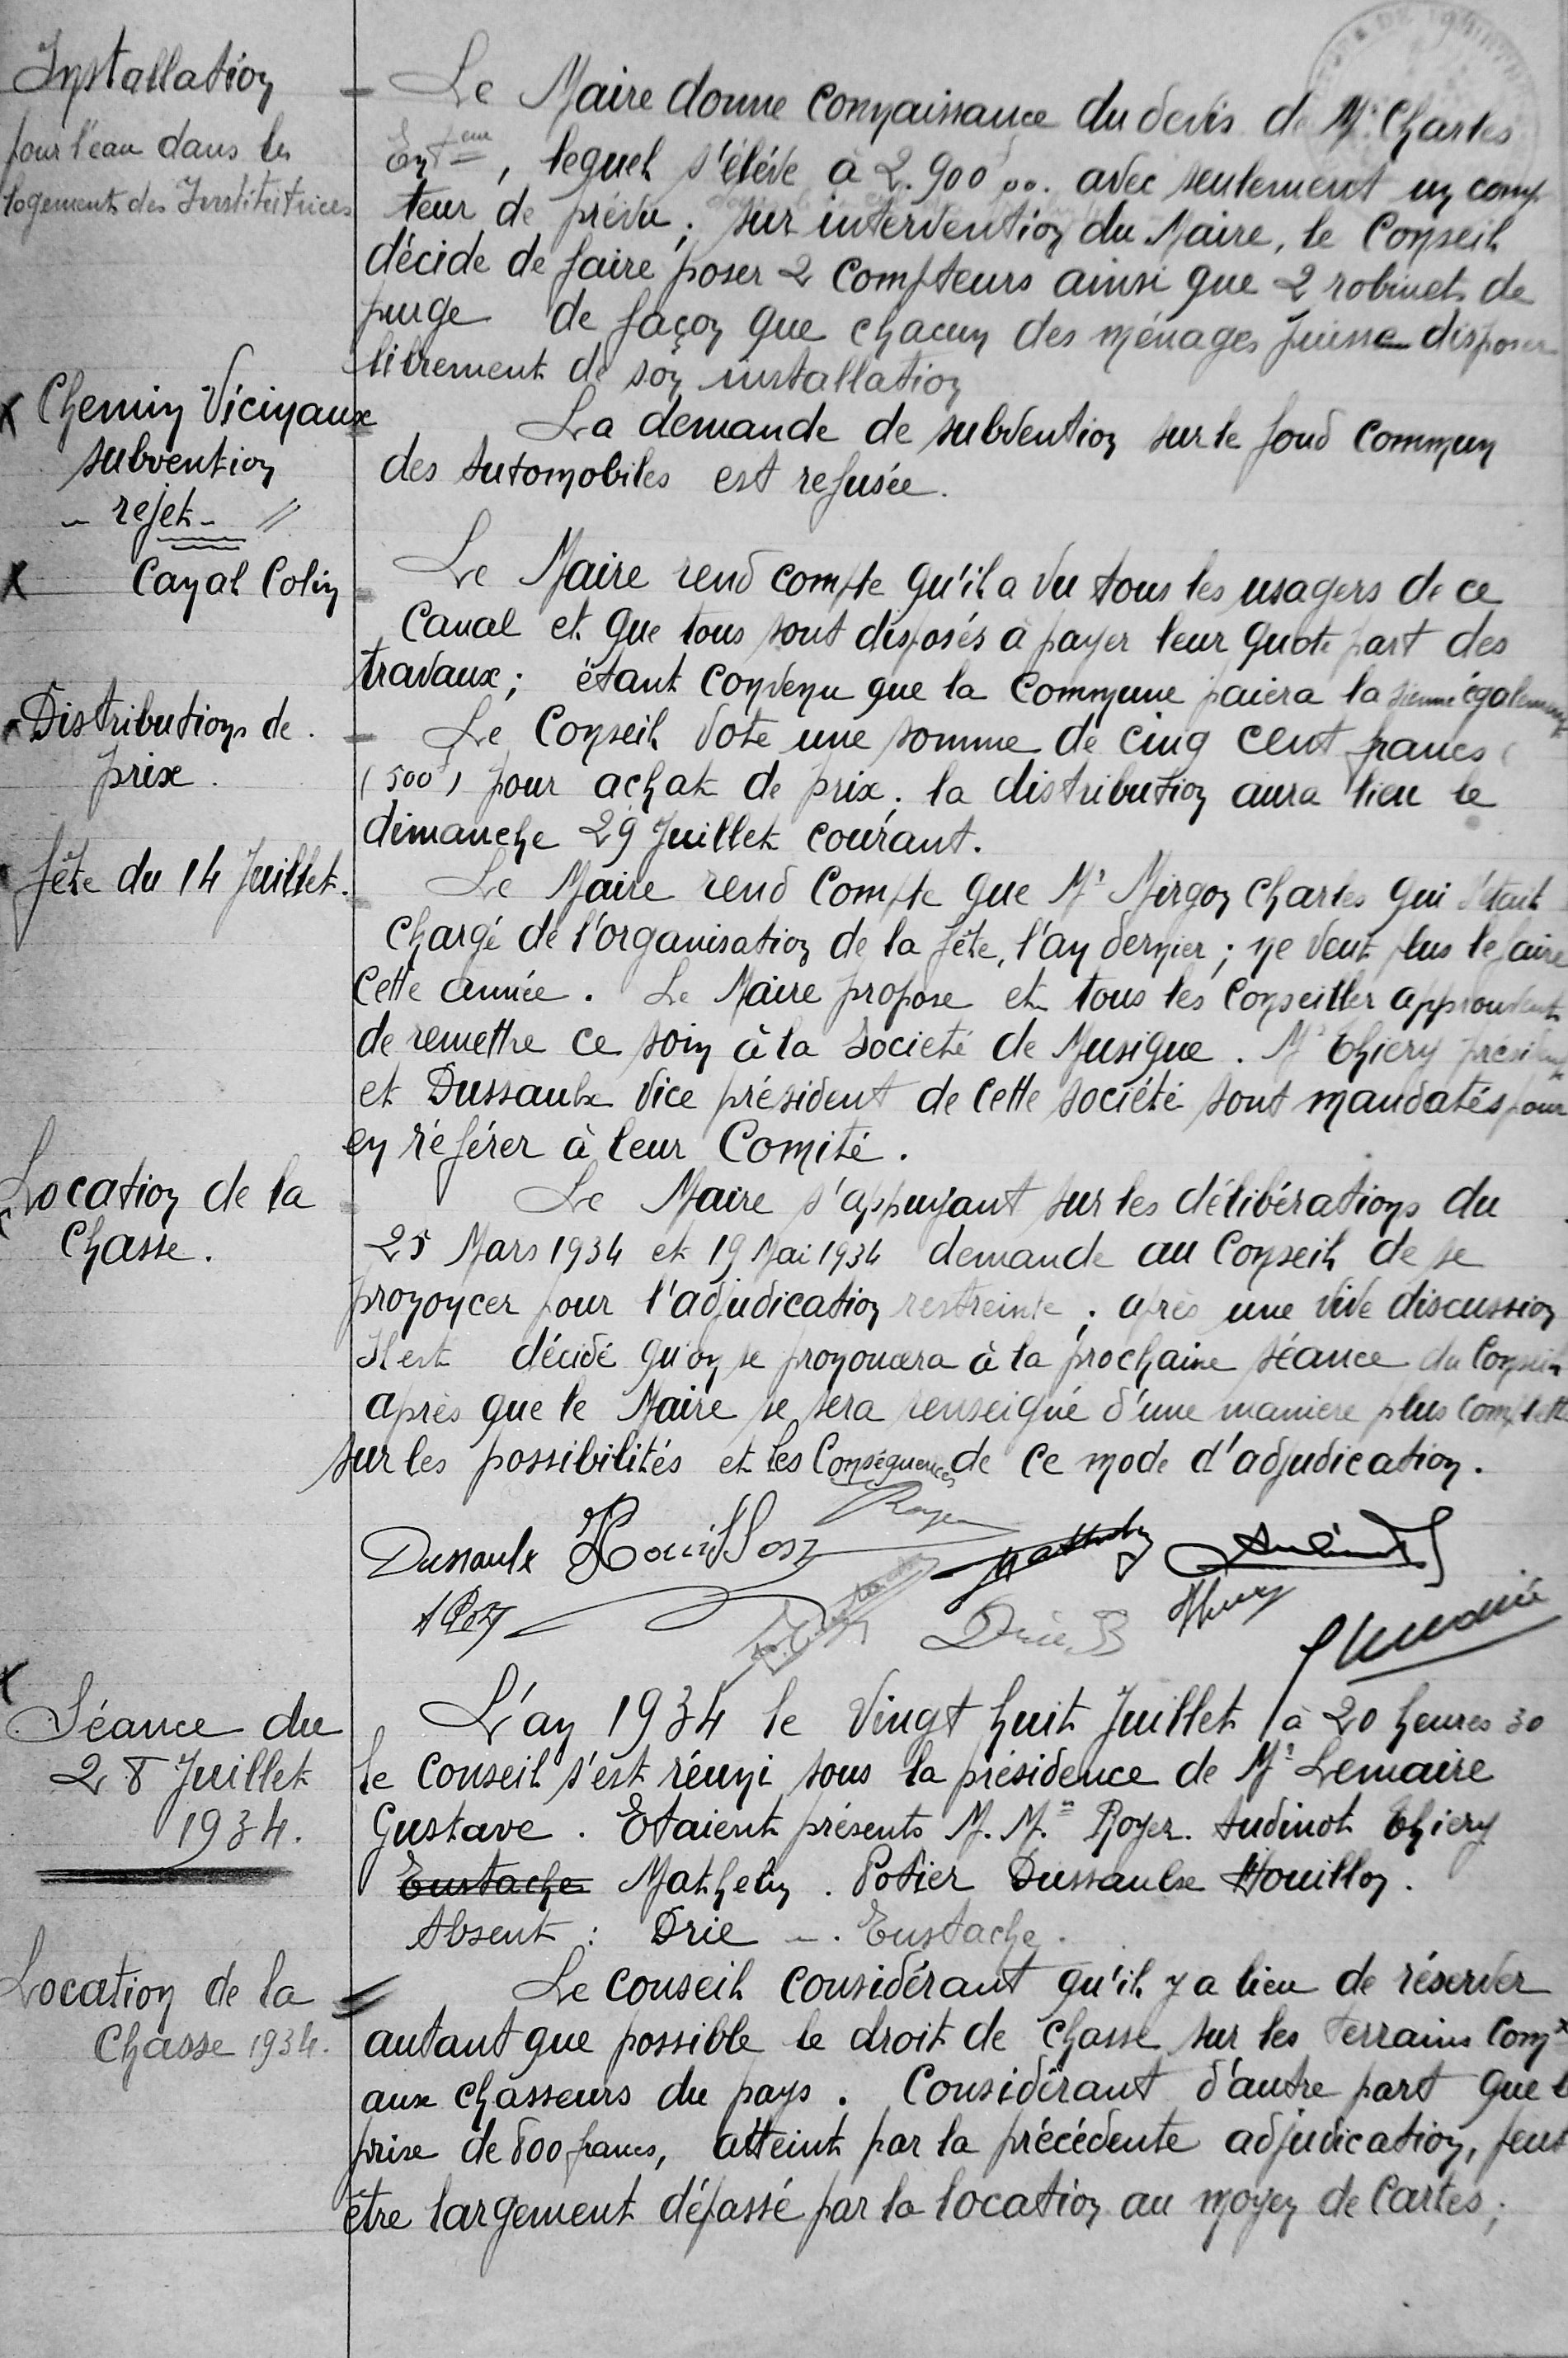 Installation
pour l'eau dans les
logements des Institutrices
- Le Maire donne connaissance du devis de Mr Charles
Entreur, lequel s'élève à 2.900f,00. avec seulement un comp-
teur de prévu; sur intervention du Maire, le Conseil
décide de faire poser 2 Compteurs ainsi que 2 robinets de
purge de façon que chacun des ménages puisse disposer
librement de son installation
X Chemin Vicinaux
subvention
- rejet - //
La demande de subvention sur le fond commun
des Automobiles est refusée.
X Canal Colin
Le Maire rend compte qu'il a vu tous les usagers de ce
Canal et que tous sont disposés à payer leur quote part des
travaux; étant convenu que la Commune paiera la sienne également
Distributions de
prix.
- Le Conseil vote une somme de cinq cent francs
(500f) pour achat de prix. la distribution aura lieu le
dimanche 29 Juillet courant.
fête du 14 Juillet.
Le Maire rend Compte que Mr Mirgon Charles qui s'était
chargé de l'organisation de la fête, l'an dernier; ne veut plus le faire
Cette année. Le Maire propose et tous les Conseiller approuvent
de remettre ce soin à la Societé de Musique. Mr Thiery président
et Dussaulx Vice président de Cette société sont mandatés pour
en référer à leur Comité.
Location de la
Chasse.
Le Maire s'appuyant sur les délibérations du
25 Mars 1934 et 19 Mai 1934 demande au Conseil de se
prononcer pour l'adjudication restreinte; après une vive discussion
Il est décidé qu'on se prononcera à la prochaine séance du Conseil
après que le Maire se sera renseigné d'une maniere plus complette
sur les possibilités et les Conséquences de ce mode d'adjudication.
Royer
Dussaulx Houillon Mathelin Audinot
Drie Thiery
Séance du
28 Juillet
1934.
L'an 1934 le Vingt huit Juillet à 20 heures 30
le Conseil s'est réuni sous la présidence de Mr Lemaire
Gustave. Etaient présents M.M.rs Royer. Audinot Thiery
Eustache Mathelin. Potier Dussaulx Houillon.
Absent: Drie -. Eustache.
Location de la
Chasse 1934.
Le conseil considérant qu'il y a lieu de réserver
autant que possible le droit de Chasse sur les terrains Comx
aux chasseurs du pays. Considérant d'autre part que l
prix de 800 francs, atteint par la précédente adjudication, peut
être largement dépassé par la location au moyen de Cartes;